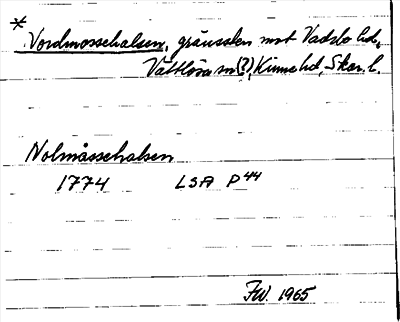 * Nordmossehalsen, gränssten mot Vadsbo hd,
Vättlösa sn(?), Kinne hd, Skar. l.
Nolmåssehalsen
1774 LSA P44
FW. 1965